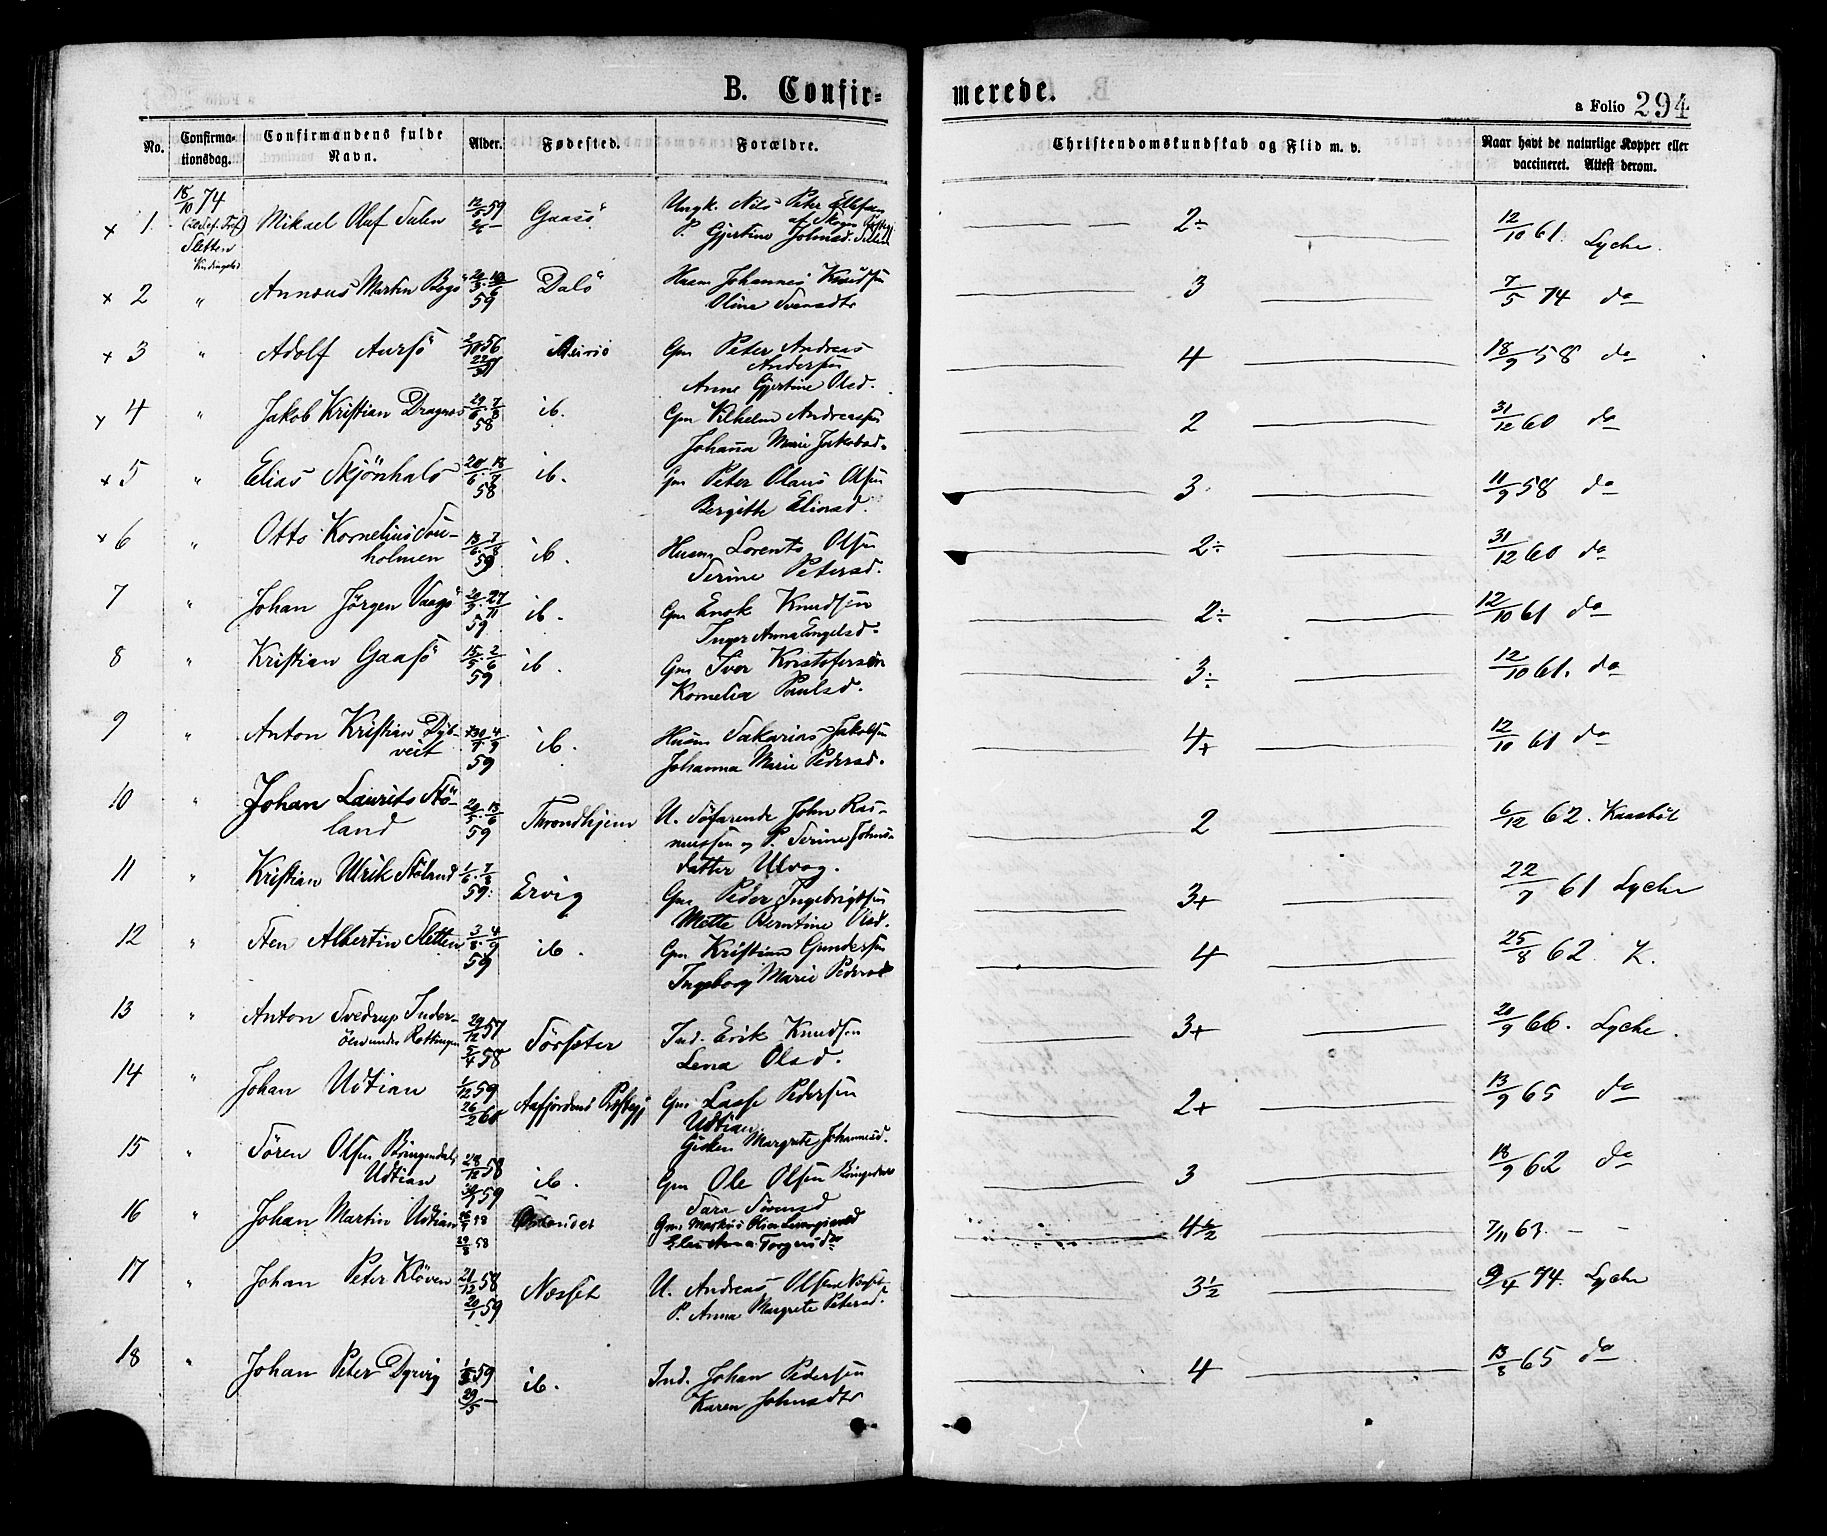 B. Confir-
merede.
a Folio 294
No.
Confirma-
tionsdag.
Confirmandens fulde
Navn.
Alder.
Fødested.
Forældre.
Christendomskundskab og Flid m. v.
Naar havt de naturlige Kopper eller
vaccineret. Attest derom.
x 1. 18/10 74 Sletten Mikael Oluf Sulen 12/5 59 Gaasö Ungk. Nils Peter Ellefsen
P. Gjertine Johnsd. 2÷ 12/10 61. Lyche.
x 2 " Annæus Martin Bogö 59 Dalö Husm Johannes Knudsen
Oline Svensdtr 3 7/5 74 do
x 3 " Adolf Aursö 56 Gm Peter Andreas
Andersen
Anne Gjertine Olsd. 4 18/9 58 do
x 4 " Jakob Kristian Dragnæs 29/6. 7/8
58 ib. Gm Vilhelm Andreassen
Johanna Marie Jakobsd. 2 31/12 60 do
x 5 " Elias Skjönhals 20/6. 18/7
58 ib. Gm Peter Olaus Olsen
Bergitte Eliasd. 3. 11/9 58 do
x 6 " Otto Kornelius
holmen 13/6. 7/8
59 ib. Husm Lorents Olsen
Serine Petersd. 2÷ 31/12 60 do
7 " Johan Jörgen Vaagö 27/11
59 ib. Gm Enok Knudsen
Inger Anna Engelsd. 2÷ 12/10 61 do
8 " Kristian Gaasö 15/5. 2/6
59 ib. Gm Iver Kristofersen
Kornelia Paulsd. 3÷ 12/10 61. do
9 " Anton Kristian Dyb-
veit 4/9
59 ib. Husm Sakarias Jakobsen
Johanna Marie Pedersd. 4+ 12/10 61 do
10 " Johan Laurits Stö-
land 20/5. 13/6
59 Throndhjem U. Söfarende John Ras-
mussen og P. Serine Johns-
datter Ulvog. 2 6/12 62. Kaasböl
11 " Kristian Ulrik Stöland 1/6. 7/8
59. Ervig Gm Peder Ingebrigtsen
Mette Berntine Olsd. 3+ 22/7 61 Lyche
12 " Sten Albertin Sletten 3/8. 4/9
59 ib. Gm Kristian Gundersen
Ingeborg Marie Pedersd 4 25/8 62. K.
13 " Anton Svedrup Inder-
Röttingen 29/12 57
5/4 58 Sörsæter Ind. Erik Knudsen
Lena Olsd. 3+ 20/9 66. Lyche.
14 " Johan Udtian 1/12 59
26/2 60 Aafjordens Præstegj Gm Lasse Pedersen
Udtian.
Gisken Margrete Johannesd. 2+ 13/9 65 do
15 " Sören Olsen
Udtian 28/12 58
59 ib. Gm Ole Olsen
Sara Sörensd 3 18/9 62 do
16 " Johan Martin Udtian 58 Gm
Torgersd 4½ 7/11 63. - -
17 " Johan Peter Klöven 21/12 58
20/1 59 Næsset U. Andreas Olsen Næsset
P. Anna Margrete Petersd. 3½ 9/4 74. Lyche
18 " Johan Peter Dyrvig 59
29/5 - ib. Ind. Johan Pedersen
Karen Johnsdtr 4 13/8 65 do